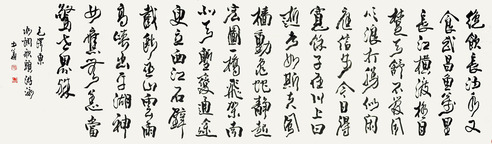 纔飲長沙水又
食武昌魚萬里
長江橫渡極目
楚天舒不管風
吹浪打勝似閑
庭信步今日得
寬餘子在川上曰
逝者如斯夫風
檣動龜蛇靜起
宏圖一橋飛架南
北天塹變通途
更立西江石壁
截斷巫山雲雨
高峽出平湖神
女應無恙當
驚世界殊
毛澤東
水調歌頭游泳